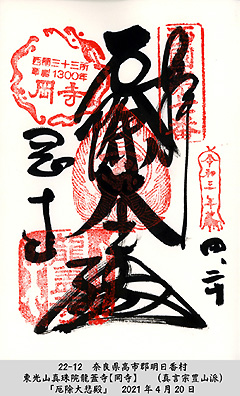 奉拝
西国第七番
西国三十三所
草創1300年
岡寺
厄除大悲殿
令和三年
四、二十
岡寺
22-12 奈良県高市郡明日香村
東光山真珠院龍蓋寺【岡寺】 (真言宗豊山派)
「厄除大悲殿」 2021年4月20日